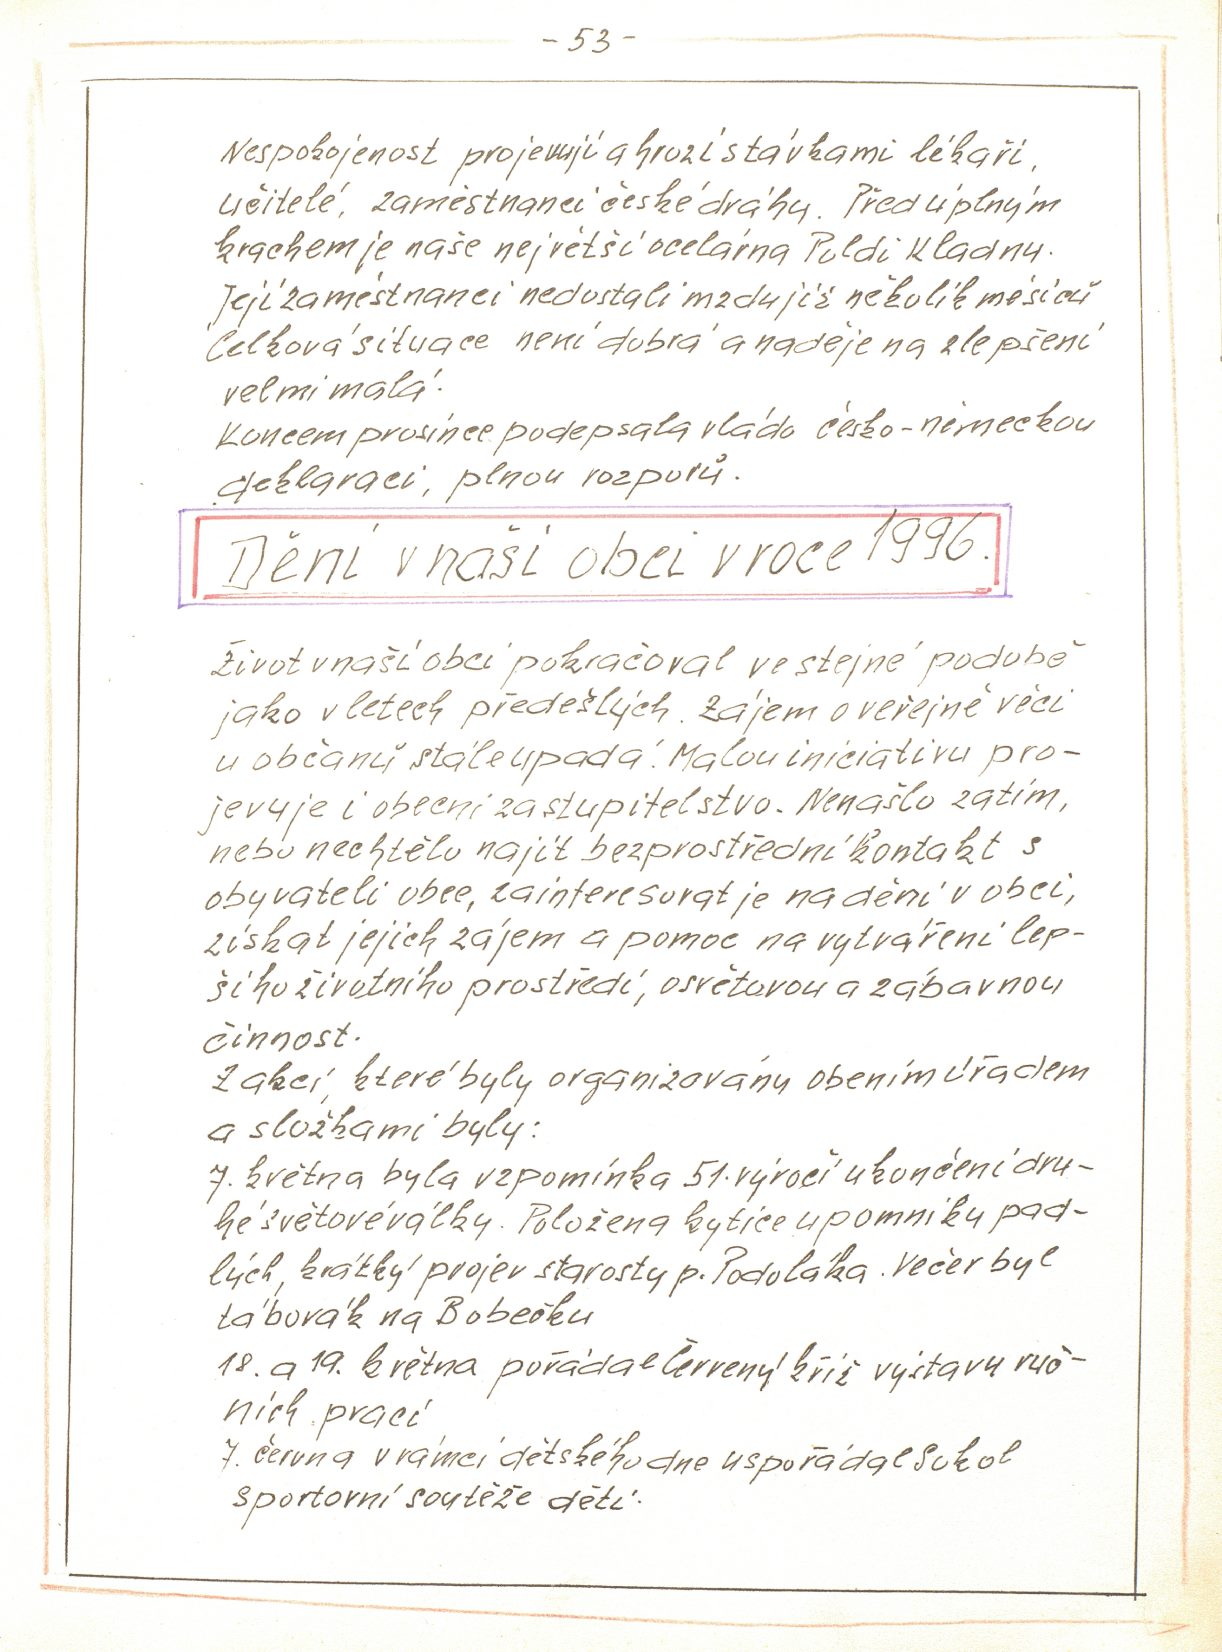 - 53 -
Nespokojenost projevují a hrozí stávkami lékaři,
učitelé, zaměstnanci české dráhy. Před úplným
krachem je naše největší ocelárna Poldi Kladno.
Její zaměstnanci nedostali mzdu již několik měsíců
Celková situace není dobrá a naděje na zlepšení
velmi malá.
Koncem prosince podepsala vláda česko-německou
deklaraci, plnou rozporů.
Dění v naší obci v roce 1996.
Život v naší obci pokračoval ve stejné podobě
jako v letech předešlých. Zájem o veřejné věci
u občanů stále upadá. Malou iniciativu pro-
jevuje i obecní zastupitelstvo. Nenašlo zatím,
nebo nechtělo najít bezprostřední kontakt s
obyvateli obce, zainteresovat je na dění v obci,
získat jejich zájem a pomoc na vytváření lep-
šího životního prostředí, osvětovou a zábavnou
činnost.
Z akcí, které byly organizovány obením úřadem
a složkami byly:
7. května byla vzpomínka 51. výročí ukončení dru-
hé světové války. Položena kytice u pomníku pad-
lých, krátký projev starosty p. Podoláka. Večer byl
táborák na Bobečku
18. a 19. května pořádal Červený kříž výstavu ruč-
ních prací
7. června v rámci dětského dne uspořádal Sokol
sportovní soutěže dětí.